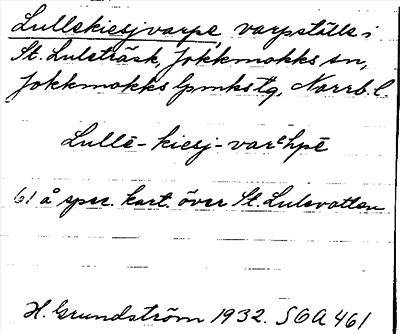 Lullekiesjvarpe, varpställe i
St. Luleträsk, Jokkmokks sn,
Jokkmokks lpmkstg, Norrb. l.
Lullē-kiesj-varᵉhpē
61 å spec. kart. över St. Lulevatten
H. Grundström 1932. SOA 461